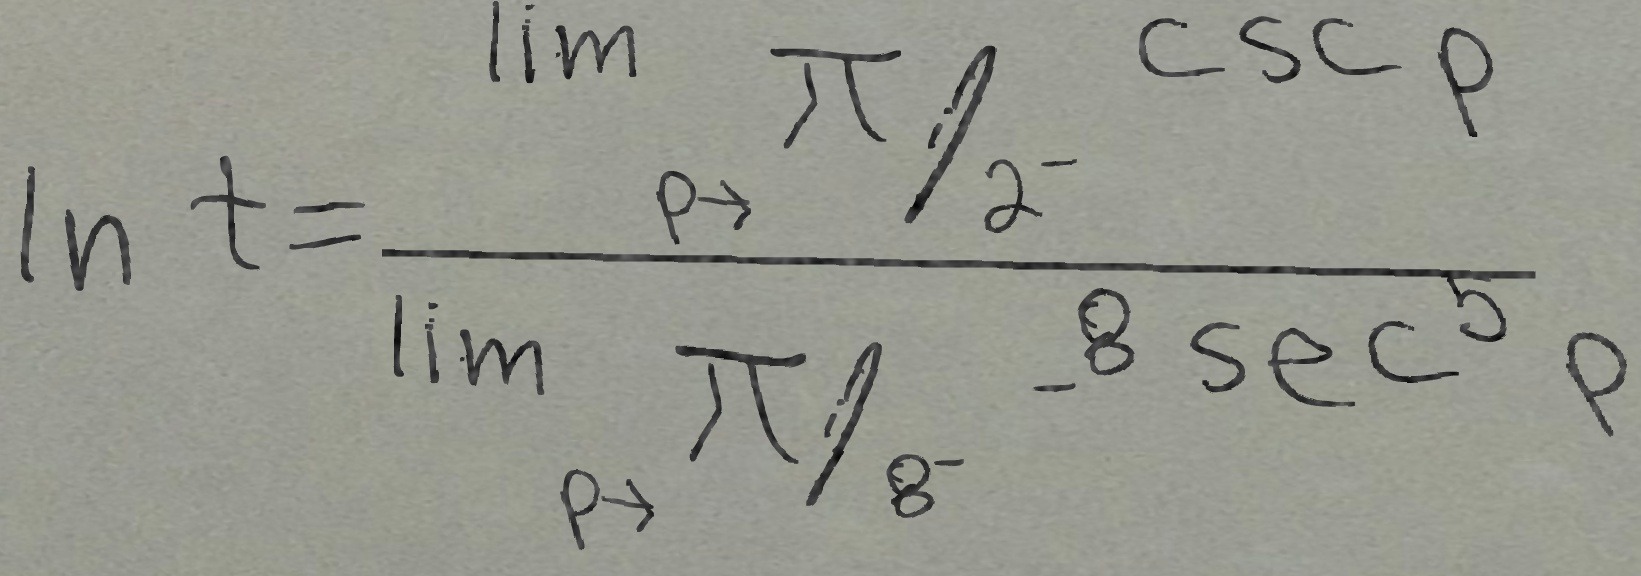 \ln t = \frac{\lim_{p \to \pi/2^-} \csc p}{\lim_{p \to \pi/8^-} -8 \sec^5 p}